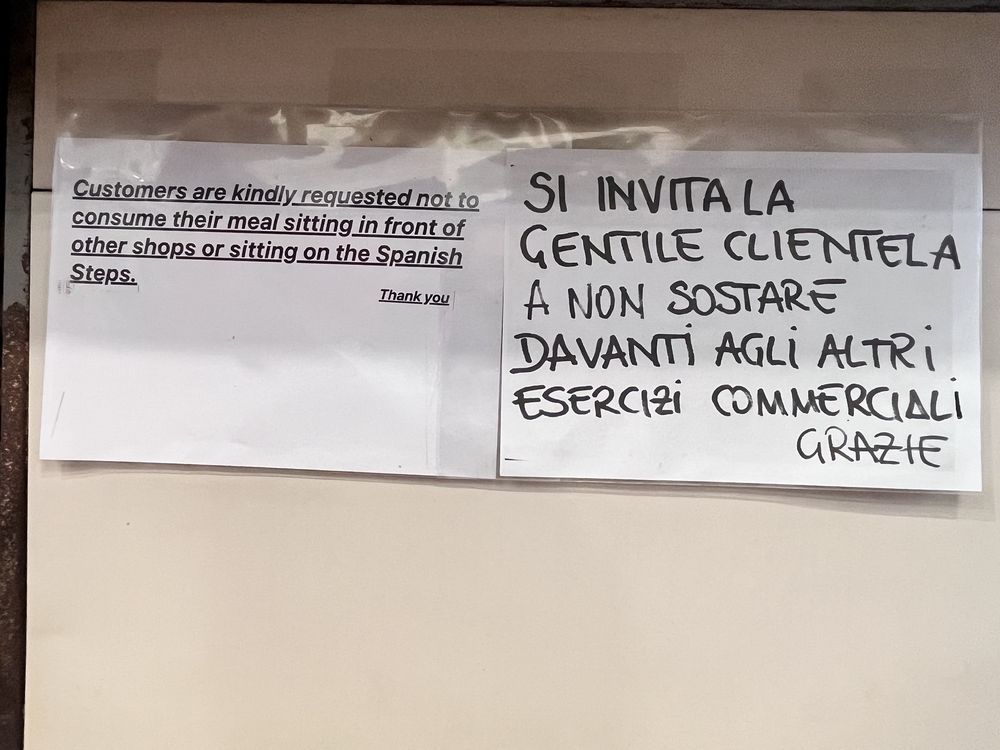 Customers are kindly requested not to
consume their meal sitting in front of
other shops or sitting on the Spanish
Steps.
Thank you
SI INVITA LA
GENTILE CLIENTELA
A NON SOSTARE
DAVANTI AGLI ALTRI
ESERCIZI COMMERCIALI
GRAZIE